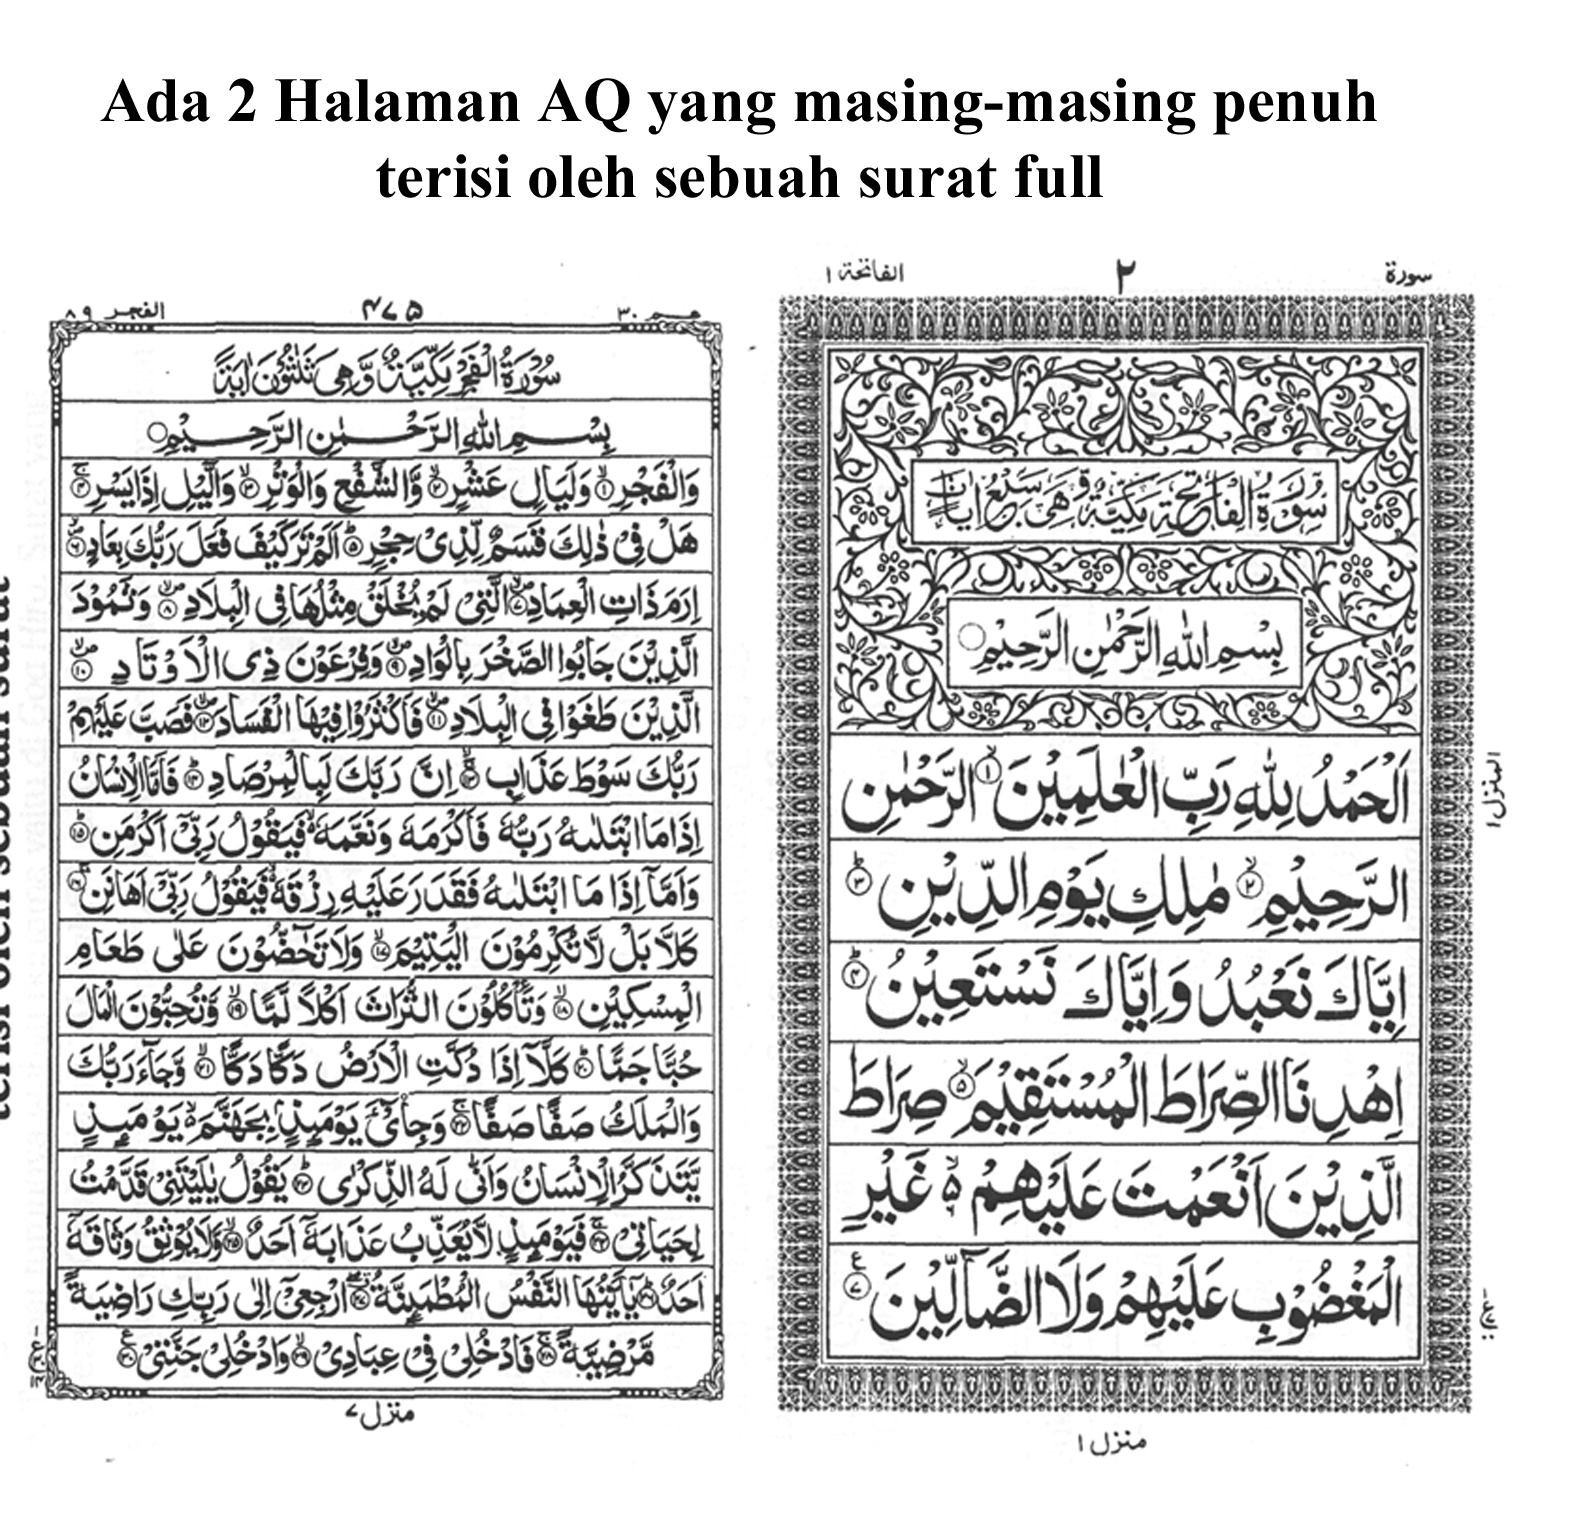 Ada 2 Halaman AQ yang masing-masing penuh
terisi oleh sebuah surat full
سورة ٢ الفاتحة ١
سُوْرَةُ الْفَاتِحَةِ مَكِّيَّةٌ وَّهِىَ سَبْعُ اٰيَاتٍ
بِسْمِ اللّٰهِ الرَّحْمٰنِ الرَّحِيْمِ
اَلْحَمْدُ لِلّٰهِ رَبِّ الْعٰلَمِيْنَ ۙ﴿١﴾ الرَّحْمٰنِ
الرَّحِيْمِ ۙ﴿٢﴾ مٰلِكِ يَوْمِ الدِّيْنِ ؕ﴿٣﴾
اِيَّاكَ نَعْبُدُ وَاِيَّاكَ نَسْتَعِيْنُ ؕ﴿۴﴾
اِهْدِنَا الصِّرَاطَ الْمُسْتَقِيْمَ ۙ﴿۵﴾ صِرَاطَ
الَّذِيْنَ اَنْعَمْتَ عَلَيْهِمْ ۙ۬ غَيْرِ
الْمَغْضُوْبِ عَلَيْهِمْ وَلَا الضَّآلِّيْنَ ﴿٧﴾ ع
المنزل ١
منزل ١
عـم ٣٠ ۴٧۵ الفجر ٨٩
سُوْرَةُ الْفَجْرِ مَكِّيَّةٌ وَّهِىَ ثَلٰثُوْنَ اٰيَةً
بِسْمِ اللّٰهِ الرَّحْمٰنِ الرَّحِيْمِ
وَالْفَجْرِ ۙ﴿١﴾ وَلَيَالٍ عَشْرٍ ۙ﴿٢﴾ وَّالشَّفْعِ وَالْوَتْرِ ۙ﴿٣﴾ وَالَّيْلِ اِذَا يَسْرِ ۚ﴿۴﴾
هَلْ فِىْ ذٰلِكَ قَسَمٌ لِّذِىْ حِجْرٍ ؕ﴿۵﴾ اَلَمْ تَرَ كَيْفَ فَعَلَ رَبُّكَ بِعَادٍ ۙ﴿٦﴾
اِرَمَ ذَاتِ الْعِمَادِ ۙ﴿٧﴾ الَّتِىْ لَمْ يُخْلَقْ مِثْلُهَا فِى الْبِلَادِ ۙ﴿٨﴾ وَثَمُوْدَ
الَّذِيْنَ جَابُوا الصَّخْرَ بِالْوَادِ ۙ﴿٩﴾ وَفِرْعَوْنَ ذِى الْاَوْتَادِ ۙ﴿١٠﴾
الَّذِيْنَ طَغَوْا فِى الْبِلَادِ ۙ﴿١١﴾ فَاَكْثَرُوْا فِيْهَا الْفَسَادَ ۙ﴿١٢﴾ فَصَبَّ عَلَيْهِمْ
رَبُّكَ سَوْطَ عَذَابٍ ۚ﴿١٣﴾ اِنَّ رَبَّكَ لَبِالْمِرْصَادِ ؕ﴿١۴﴾ فَاَمَّا الْاِنْسَانُ
اِذَا مَا ابْتَلٰىهُ رَبُّهٗ فَاَكْرَمَهٗ وَنَعَّمَهٗ ۙ فَيَقُوْلُ رَبِّىْۤ اَكْرَمَنِ ؕ﴿١۵﴾
وَاَمَّاۤ اِذَا مَا ابْتَلٰىهُ فَقَدَرَ عَلَيْهِ رِزْقَهٗ ۙ فَيَقُوْلُ رَبِّىْۤ اَهَانَنِ ۚ﴿١٦﴾
كَلَّا بَلْ لَّا تُكْرِمُوْنَ الْيَتِيْمَ ۙ﴿١٧﴾ وَلَا تَحٰٓضُّوْنَ عَلٰى طَعَامِ
الْمِسْكِيْنِ ۙ﴿١٨﴾ وَتَاْكُلُوْنَ التُّرَاثَ اَكْلًا لَّمًّا ۙ﴿١٩﴾ وَّتُحِبُّوْنَ الْمَالَ
حُبًّا جَمًّا ؕ﴿٢٠﴾ كَلَّاۤ اِذَا دُكَّتِ الْاَرْضُ دَكًّا دَكًّا ۙ﴿٢١﴾ وَّجَآءَ رَبُّكَ
وَالْمَلَكُ صَفًّا صَفًّا ۚ﴿٢٢﴾ وَجِاىْٓءَ يَوْمَئِذٍۭ بِجَهَنَّمَ ۙ يَوْمَئِذٍ
يَّتَذَكَّرُ الْاِنْسَانُ وَاَنّٰى لَهُ الذِّكْرٰى ؕ﴿٢٣﴾ يَقُوْلُ يٰلَيْتَنِىْ قَدَّمْتُ
لِحَيَاتِىْ ۚ﴿٢۴﴾ فَيَوْمَئِذٍ لَّا يُعَذِّبُ عَذَابَهٗۤ اَحَدٌ ۙ﴿٢۵﴾ وَّلَا يُوْثِقُ وَثَاقَهٗۤ
اَحَدٌ ؕ﴿٢٦﴾ يٰۤاَيَّتُهَا النَّفْسُ الْمُطْمَئِنَّةُ ۖ﴿٢٧﴾ ارْجِعِىْۤ اِلٰى رَبِّكِ رَاضِيَةً
مَّرْضِيَّةً ۚ﴿٢٨﴾ فَادْخُلِىْ فِىْ عِبَادِىْ ۙ﴿٢٩﴾ وَادْخُلِىْ جَنَّتِىْ ﴿٣٠﴾ ع
منزل ٧
terisi oleh sebuah surat